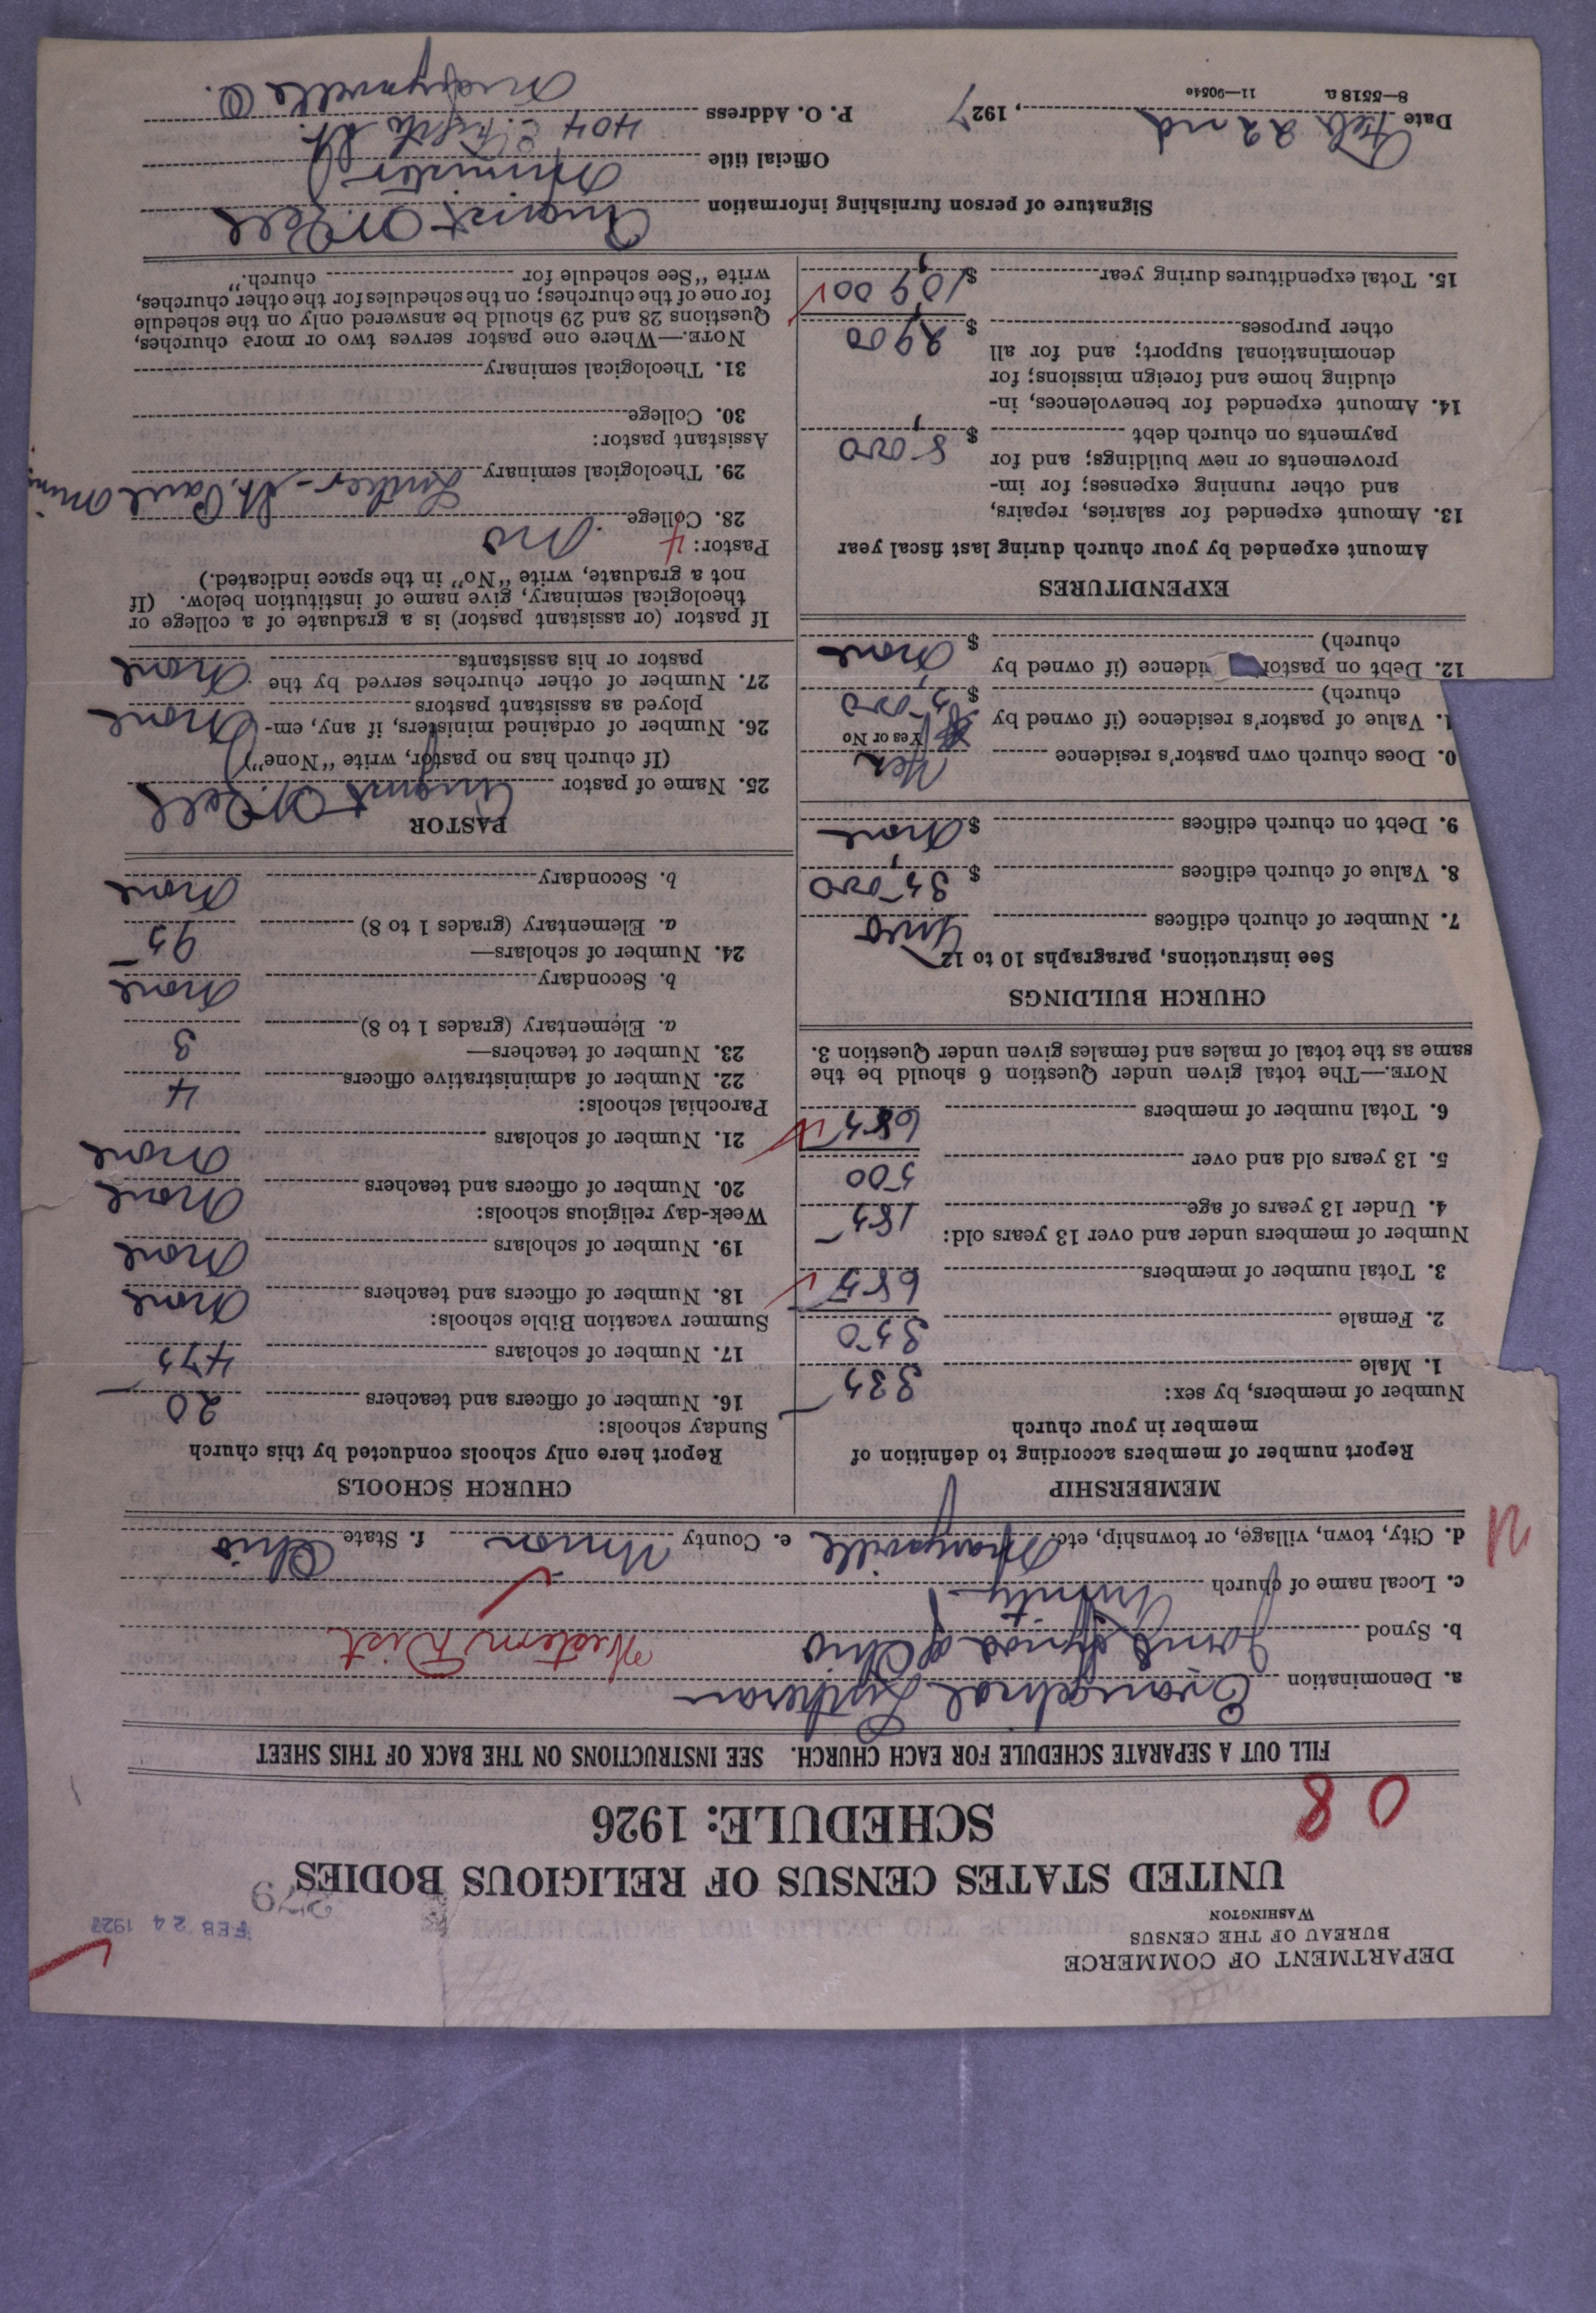 DEPARTMENT OF COMMERCE
BUREAU OF THE CENSUS
WASHINGTON
FEB 24 1927
279
UNITED STATES CENSUS OF RELIGIOUS BODIES
SCHEDULE: 1926
08
FILL OUT A SEPARATE SCHEDULE FOR EACH CHURCH. SEE INSTRUCTIONS ON THE BACK OF THIS SHEET
a. Denomination Evangelical Lutheran
b. Synod Joint Synod of Ohio Western Dist
c. Local name of church Trinity
d. City, town, village, or township, etc. Marysville e. County Union f. State Ohio
MEMBERSHIP
Report number of members according to definition of
member in your church
Number of members, by sex:
1. Male 335
2. Female 350
3. Total number of members 685
Number of members under and over 13 years old:
4. Under 13 years of age 185
5. 13 years old and over 500
6. Total number of members 685
NOTE.—The total given under Question 6 should be the
same as the total of males and females given under Question 3.
CHURCH BUILDINGS
See instructions, paragraphs 10 to 12
7. Number of church edifices One
8. Value of church edifices $ 35,000
9. Debt on church edifices $ None
0. Does church own pastor's residence Yes
Yes or No
1. Value of pastor's residence (if owned by
church) $ 5,000
12. Debt on pastor idence (if owned by
church) $ None
EXPENDITURES
Amount expended by your church during last fiscal year
13. Amount expended for salaries, repairs,
and other running expenses; for im-
provements or new buildings; and for
payments on church debt $ 8,000
14. Amount expended for benevolences, in-
cluding home and foreign missions; for
denominational support; and for all
other purposes $ 2,900
15. Total expenditures during year $ 10,900
CHURCH SCHOOLS
Report here only schools conducted by this church
Sunday schools:
16. Number of officers and teachers 20
17. Number of scholars 475
Summer vacation Bible schools:
18. Number of officers and teachers None
19. Number of scholars None
Week-day religious schools:
20. Number of officers and teachers None
21. Number of scholars None
Parochial schools:
22. Number of administrative officers 4
23. Number of teachers—
a. Elementary (grades 1 to 8) 3
b. Secondary None
24. Number of scholars—
a. Elementary (grades 1 to 8) 95
b. Secondary None
PASTOR
25. Name of pastor August
(If church has no pastor, write "None")
26. Number of ordained ministers, if any, em-
ployed as assistant pastors None
27. Number of other churches served by the
pastor or his assistants None
If pastor (or assistant pastor) is a graduate of a college or
theological seminary, give name of institution below. (If
not a graduate, write "No" in the space indicated.)
Pastor: 4
28. College No
29. Theological seminary Luther - St. Paul Minn
Assistant pastor:
30. College
31. Theological seminary
NOTE.—Where one pastor serves two or more churches,
Questions 28 and 29 should be answered only on the schedule
for one of the churches; on the schedules for the other churches,
write "See schedule for church."
Signature of person furnishing information August
Official title Minister
Date Feb. 22nd, 1927 P. O. Address 404 E. Fifth St.
Marysville O.
8—5518a 11—9054e